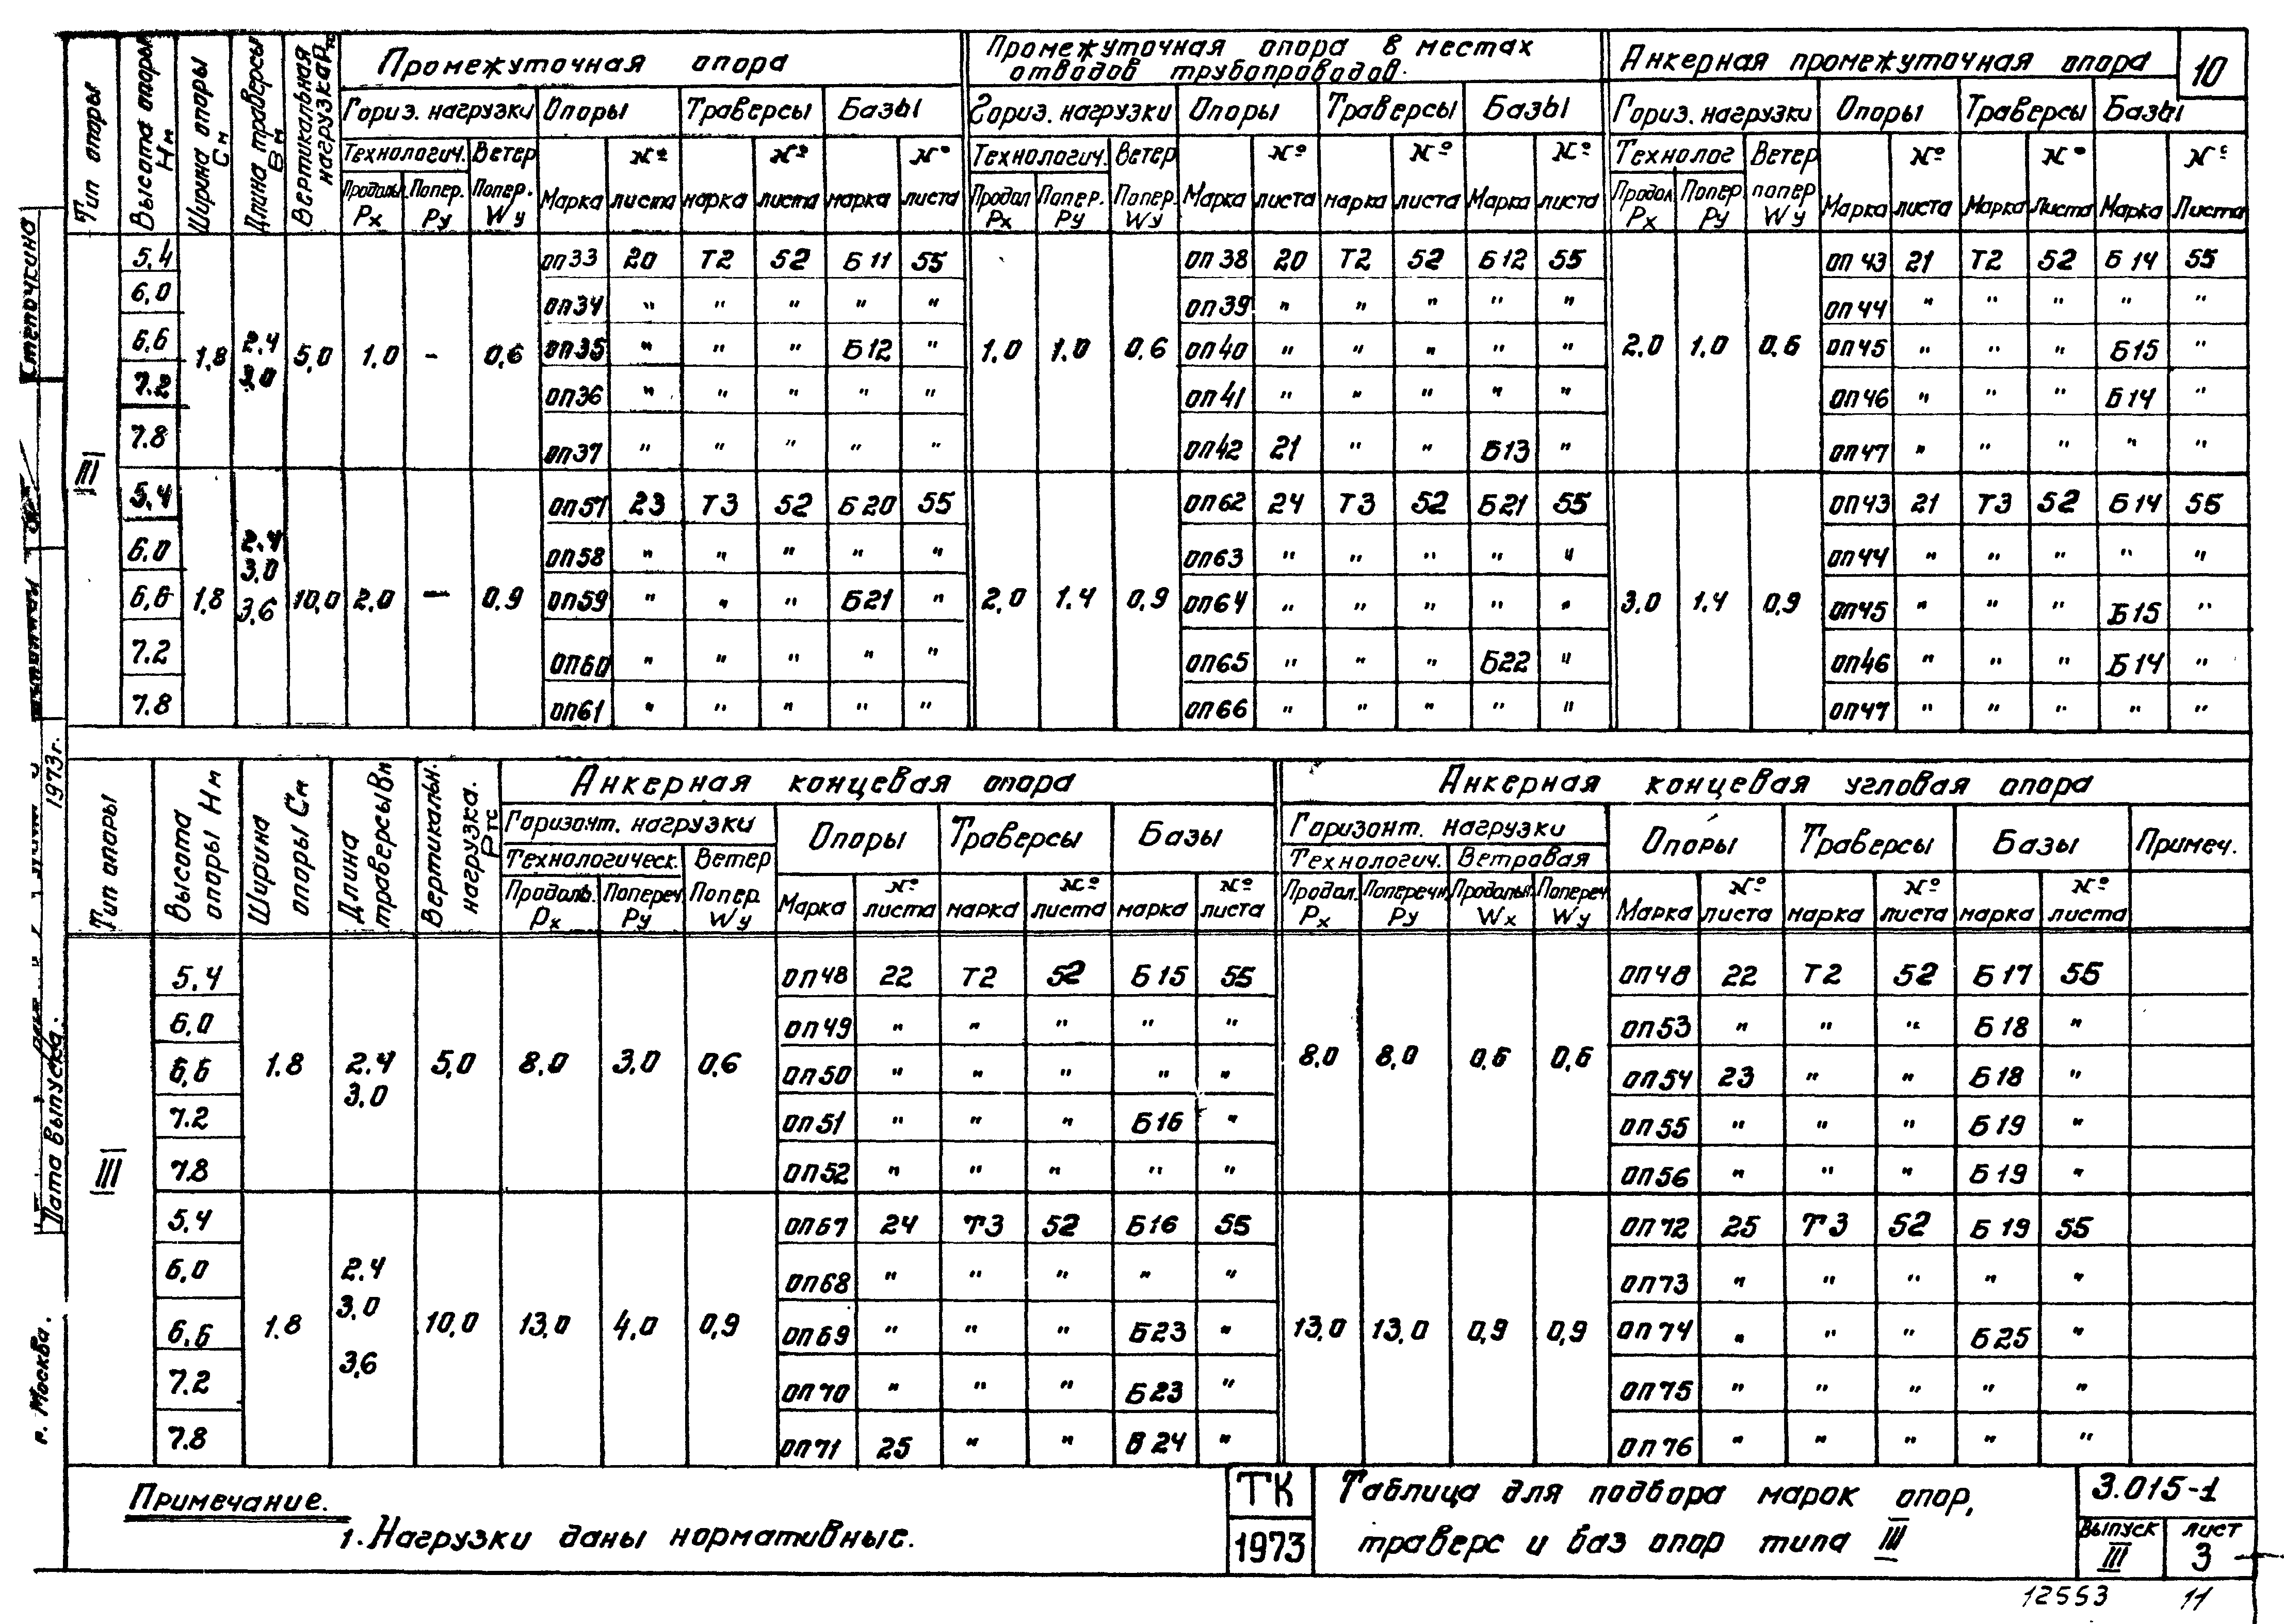 10
Промежуточная опора
Промежуточная опора в местах отводов трубопроводов.
Анкерная промежуточная опора
Тип опоры
Высота опоры Нм
Ширина опоры См
Длина траверсы Вм
Вертикальная нагрузка Ртс
Гориз. нагрузки Опоры Траверсы Базы Гориз. нагрузки Опоры Траверсы Базы Гориз. нагрузки Опоры Траверсы Базы
Технологич. Ветер № № № Технологич. Ветер № № № Технолог Ветер № № №
Продоль Рх Попер. Ру Попер. Wу Марка листа марка листа марка листа Продол Рх Попер. Ру Попер. Wу Марка листа марка листа Марка листа Продол Рх Попер Ру попер Wу Марка листа Марка Листа Марка Листа
III
5,4 оп33 20 Т2 52 Б11 55 оп38 20 Т2 52 Б12 55 оп43 21 Т2 52 Б14 55
6,0 оп34 " " " " " оп39 " " " " " оп44 " " " " "
6,6 1,8 2,4 3,0 5,0 1,0 - 0,6 оп35 " " " Б12 " 1,0 1,0 0,6 оп40 " " " " " 2,0 1,0 0,6 оп45 " " " Б15 "
7.2 оп36 " " " " " оп41 " " " " " оп46 " " " Б14 "
7.8 оп37 " " " " " оп42 21 " " Б13 " оп47 " " " " "
5,4 оп57 23 Т3 52 Б20 55 оп62 24 Т3 52 Б21 55 оп43 21 Т3 52 Б14 55
6,0 оп58 " " " " " оп63 " " " " " оп44 " " " " "
6,6 1,8 2,4 3,0 3,6 10,0 2,0 — 0,9 оп59 " " " Б21 " 2,0 1,4 0,9 оп64 " " " " " 3,0 1,4 0,9 оп45 " " " Б15 "
7.2 оп60 " " " " " оп65 " " " Б22 " оп46 " " " Б14 "
7.8 оп61 " " " " " оп66 " " " " " оп47 " " " " "
Анкерная концевая опора
Анкерная концевая угловая опора
Тип опоры
Высота опоры Нм
Ширина опоры См
Длина траверсы Вм
Вертикальн. нагрузка. Ртс
Горизонт. нагрузки Опоры Траверсы Базы Горизонт. нагрузки Опоры Траверсы Базы Примеч.
Технологическ. Ветер № № № Технологич. Ветровая № № №
Продоль. Рх Попереч Ру Попер Wу Марка листа марка листа марка листа Продол. Рх Поперечн Ру Продольн Wх Попереч Wу Марка листа марка листа марка листа
III
5,4 оп48 22 Т2 52 Б15 55 оп48 22 Т2 52 Б17 55
6,0 оп49 " " " " " оп53 " " " Б18 "
6,6 1.8 2.4 3,0 5,0 8,0 3,0 0,6 оп50 " " " " " 8,0 8,0 0,6 0,6 оп54 23 " " Б18 "
7.2 оп51 " " " Б16 " оп55 " " " Б19 "
7.8 оп52 " " " " " оп56 " " " Б19 "
5,4 оп67 24 Т3 52 Б16 55 оп72 25 Т3 52 Б19 55
6,0 оп68 " " " " " оп73 " " " " "
6,6 1.8 2.4 3,0 3,6 10,0 13,0 4,0 0,9 оп69 " " " Б23 " 13,0 13,0 0,9 0,9 оп74 " " " Б25 "
7.2 оп70 " " " Б23 " оп75 " " " " "
7.8 оп71 25 " " В24 " оп76 " " " " "
Примечание.
1. Нагрузки даны нормативные.
ТК
1973
Таблица для подбора марок опор,
траверс и баз опор типа III
3.015-1
Выпуск III
лист 3
12553 11
Степочкина
1973г.
Дата выпуска:
г. Москва.